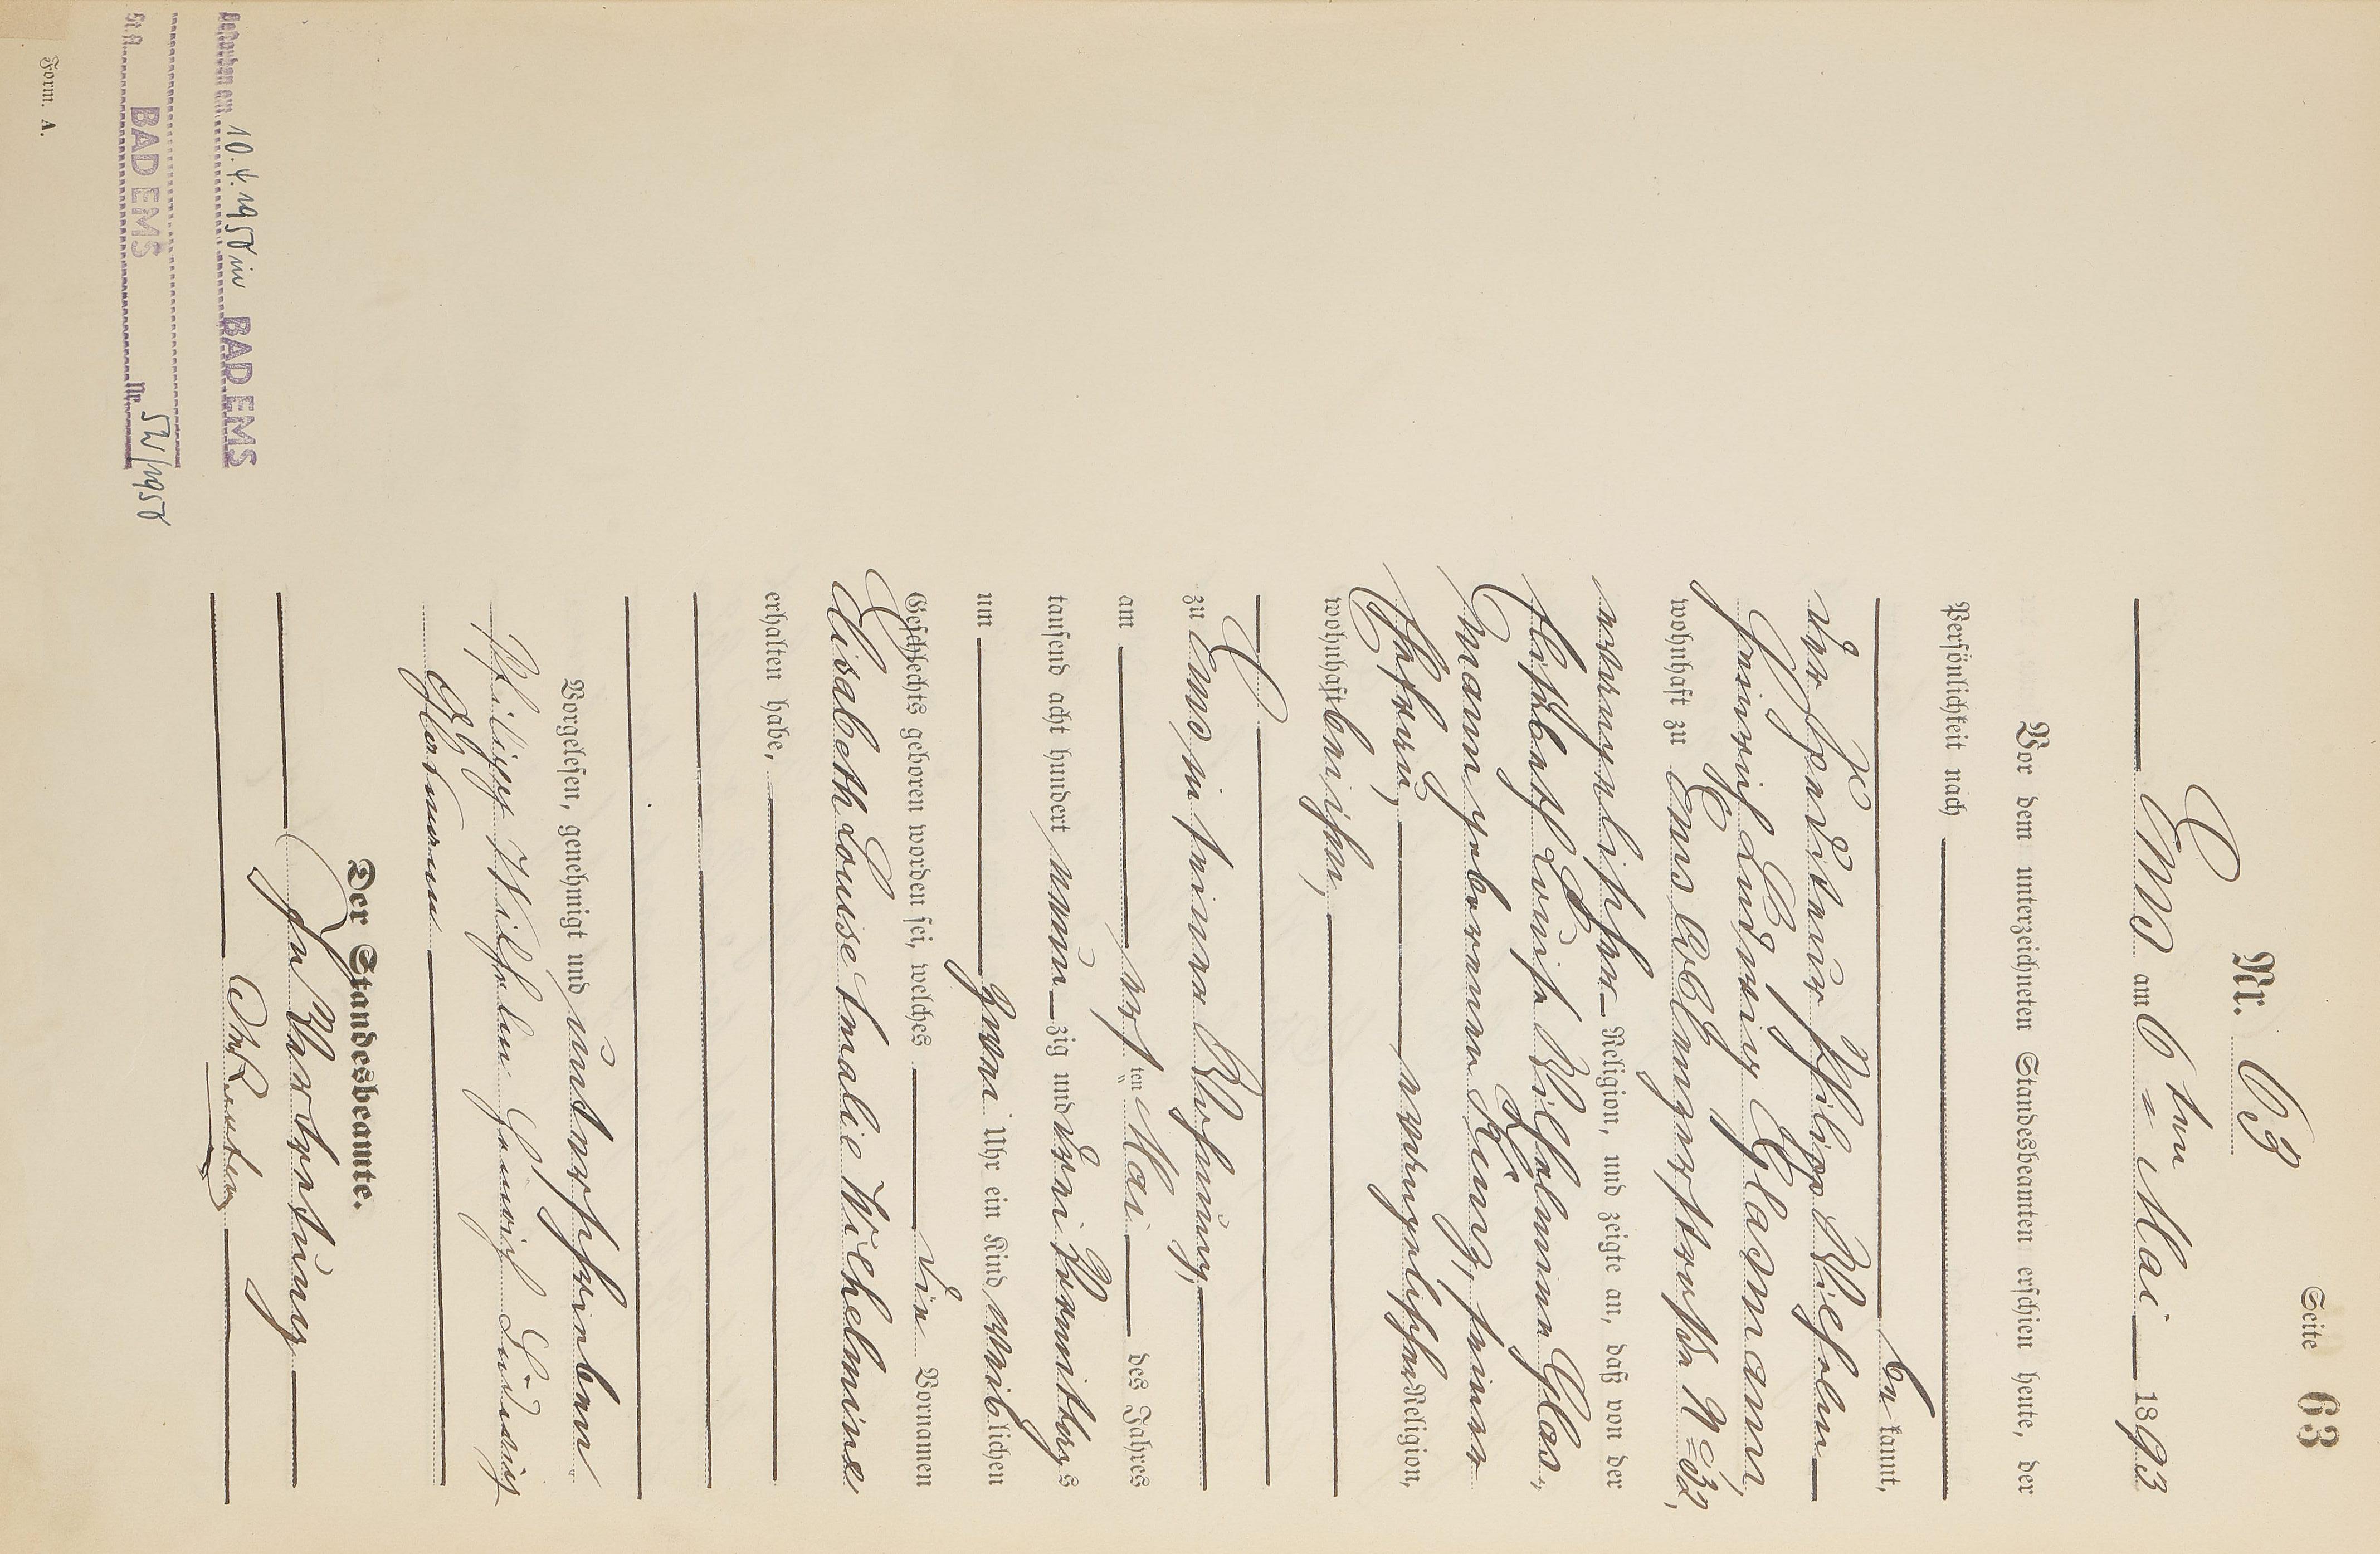 Seite 63
Nr. 63
Ems am 6ten Mai 1893
Vor dem unterzeichneten Standesbeamten erschien heute, der
Persönlichkeit nach
be kannt,
der Friseur Philipp Wilhelm
Heinrich Ludwig Glasmann,
wohnhaft zu Ems Coblenzerstraße N= 32,
evangelischer Religion, und zeigte an, daß von der
Elisabeth Louise Wilhelmine Glas-
mann geborenen Kunz, seiner
Ehefrau, evangelischer Religion,
wohnhaft bei ihm,
zu Ems in seiner Wohnung,
am ersten Mai des Jahres
tausend acht hundert neun zig und drei Vormittags
um zwei Uhr ein Kind weiblichen
Geschlechts geboren worden sei, welches die Vornamen
Elisabeth Louise Amalie Wilhelmine
erhalten habe,
Vorgelesen, genehmigt und unterschrieben
Philipp Wilhelm Heinrich Ludwig
Glasmann
Der Standesbeamte.
In Vertretung
in BAD EMS
BAD EMS Nr.
Form. A.